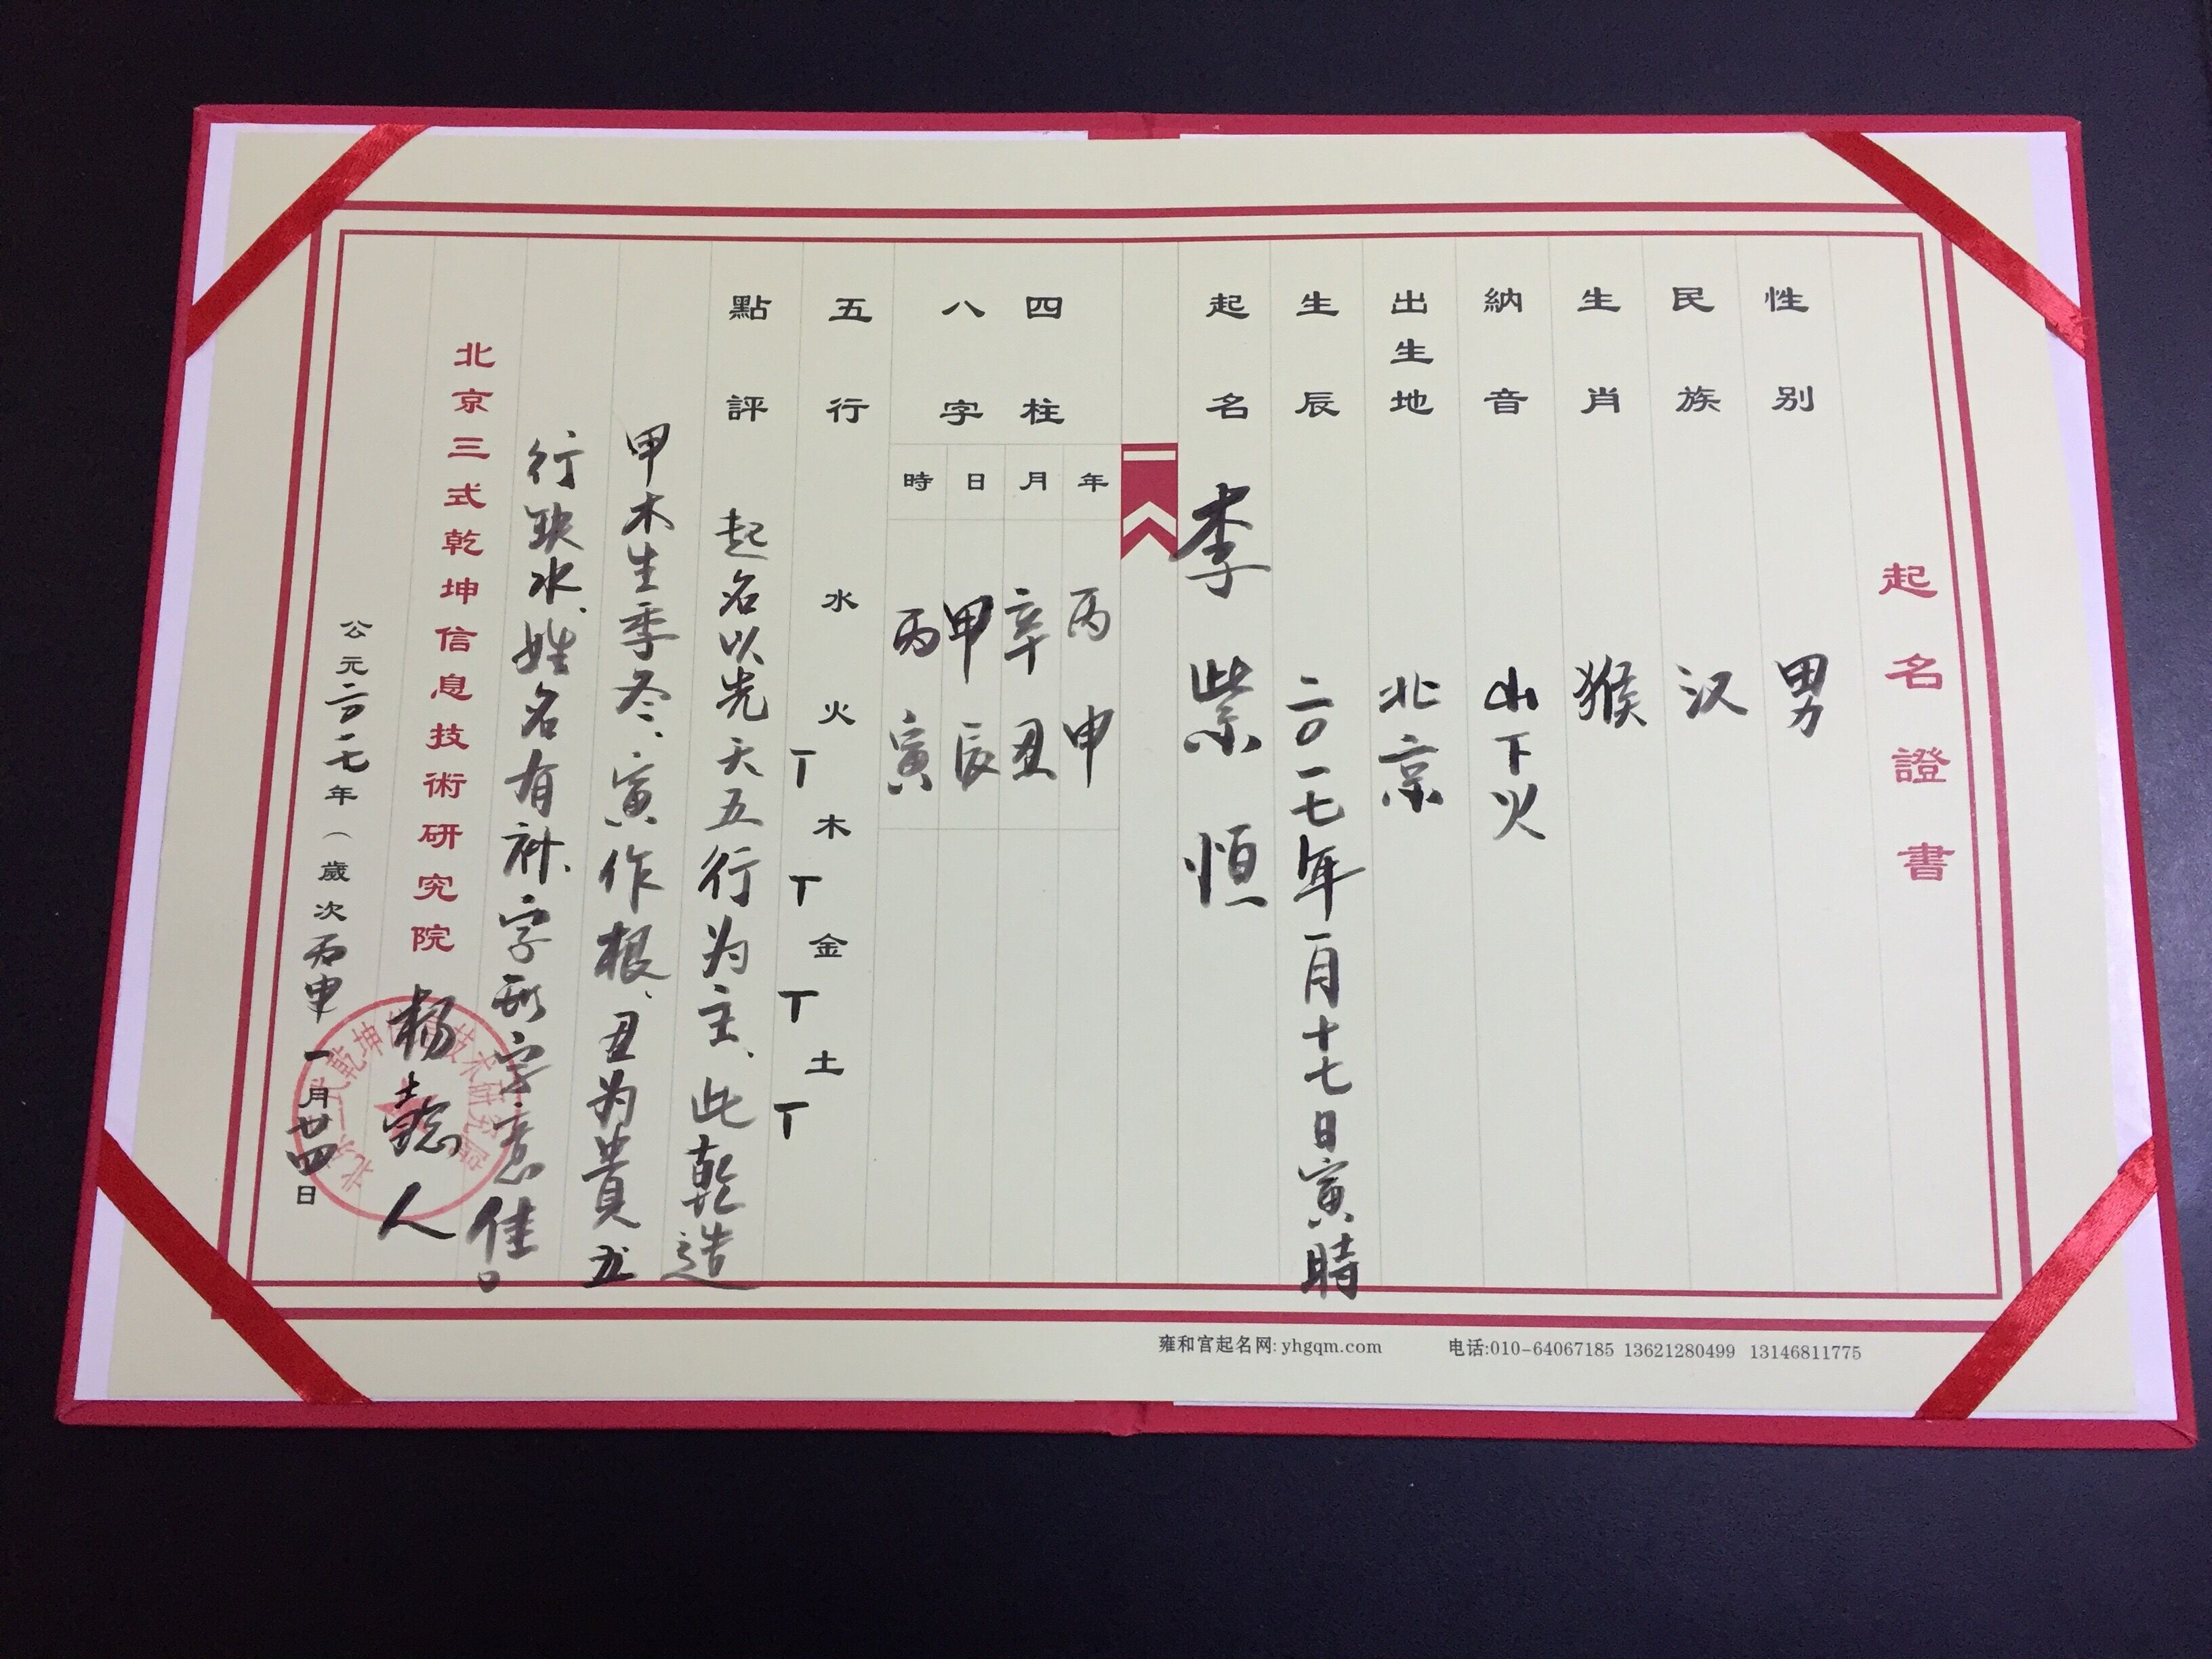 起名證書
性别 男
民族 汉
生肖 猴
納音 山下火
出生地 北京
生辰 二〇一七年一月十七日寅時
起名 李紫恒
四柱
八字
年 丙申
月 辛丑
日 甲辰
時 丙寅
五行 水 火丅 木丅 金丅 土丅
點評 起名以先天五行为主、此乾造
甲木生季冬、寅作根、丑为貴五
行缺水、姓名有补、字形字意佳。
北京三式乾坤信息技術研究院 杨懿人
公元二〇一七年（歲次丙申 一月廿四日
雍和宫起名网: yhgqm.com 电话:010-64067185 13621280499 13146811775